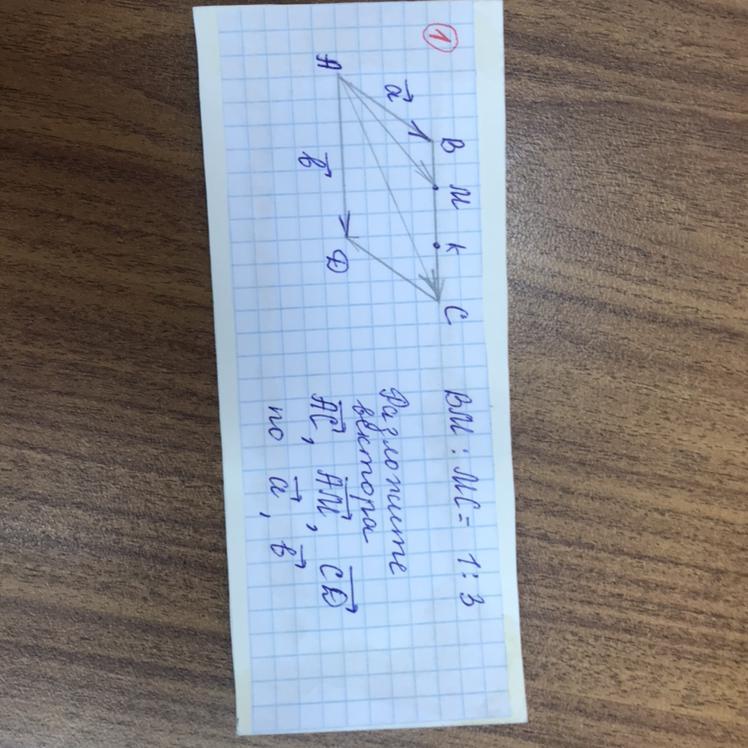 1
B M K C
a
A D
b
BM : MC = 1 : 3
Разложите
вектора
AC, AM, CD
по a, b